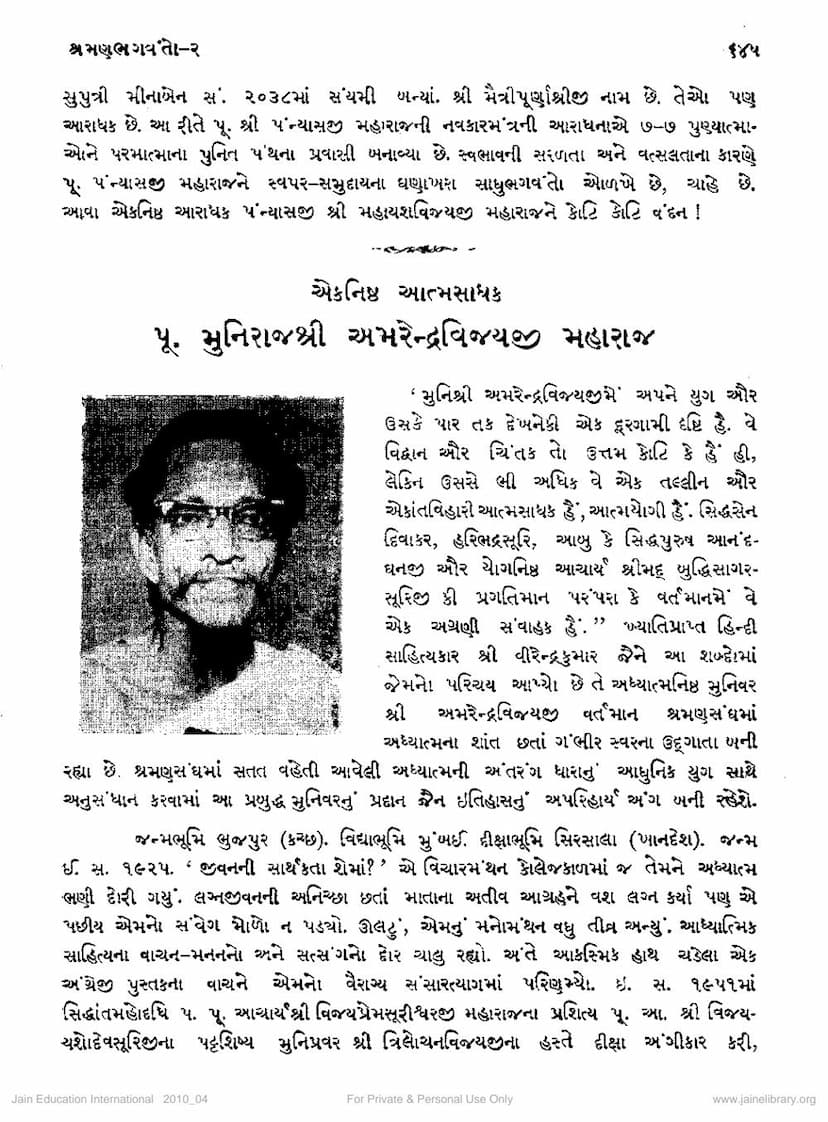 શ્રમણભગવંતો–૨ ૬૪૫
સુપુત્રી મીનાબેન સં. ૨૦૩૮માં સંયમી બન્યાં. શ્રી મૈત્રીપૂર્ણાશ્રીજી નામ છે. તેઓ પણ
આરાધક છે. આ રીતે પૂ. શ્રી પંન્યાસજી મહારાજની નવકારમંત્રની આરાધનાએ ૭–૭ પુણ્યાત્મા-
ઓને પરમાત્માના પુનિત પંથના પ્રવાસી બનાવ્યા છે. સ્વભાવની સરળતા અને વત્સલતાના કારણે
પૂ. પંન્યાસજી મહારાજને સ્વપર–સમુદાયના ઘણાખરા સાધુભગવંતો ઓળખે છે, ચાહે છે.
આવા એકનિષ્ઠ આરાધક પંન્યાસજી શ્રી મહાયશવિજયજી મહારાજને કોટિ કોટિ વંદન !
એકનિષ્ઠ આત્મસાધક
પૂ. મુનિરાજશ્રી અમરેન્દ્રવિજયજી મહારાજ
‘ મુનિશ્રી અમરેન્દ્રવિજયજીમેં અપને યુગ ઔર
ઉસકે પાર તક દેખનેકી એક દૂરગામી દષ્ટિ હૈ. વે
વિદ્વાન ઔર ચિંતક તો ઉત્તમ કોટિ કે હૈં હી,
લેકિન ઉસસે ભી અધિક વે એક તલ્લીન ઔર
એકાંતવિહારી આત્મસાધક હૈં, આત્મયોગી હૈં. સિદ્ધસેન
દિવાકર, હરિભદ્રસૂરિ, આબુ કે સિદ્ધપુરુષ આનંદ-
ઘનજી ઔર યોગનિષ્ઠ આચાર્ય શ્રીમદ્ બુદ્ધિસાગર-
સૂરિજી કી પ્રગતિમાન પરંપરા કે વર્તમાનમેં વે
એક અગ્રણી સંવાહક હૈં. ’’ ખ્યાતિપ્રાપ્ત હિન્દી
સાહિત્યકાર શ્રી વીરેન્દ્રકુમાર જૈને આ શબ્દોમાં
જેમનો પરિચય આપ્યો છે તે અધ્યાત્મનિષ્ઠ મુનિવર
શ્રી અમરેન્દ્રવિજયજી વર્તમાન શ્રમણસંઘમાં
અધ્યાત્મના શાંત છતાં ગંભીર સ્વરના ઉદ્ગાતા બની
રહ્યા છે. શ્રમણસંઘમાં સતત વહેતી આવેલી અધ્યાત્મની અંતરંગ ધારાનું આધુનિક યુગ સાથે
અનુસંધાન કરવામાં આ પ્રબુદ્ધ મુનિવરનું પ્રદાન જૈન ઇતિહાસનું અપરિહાર્ય અંગ બની રહેશે.
જન્મભૂમિ ભુજપુર (કચ્છ). વિદ્યાભૂમિ મુંબઈ. દીક્ષાભૂમિ સિરસાલા (ખાનદેશ). જન્મ
ઈ. સ. ૧૯૨૫. ‘ જીવનની સાર્થકતા શેમાં? ’ એ વિચારમંથન કોલેજકાળમાં જ તેમને અધ્યાત્મ
ભણી દોરી ગયું. લગ્નજીવનની અનિચ્છા છતાં માતાના અતીવ આગ્રહને વશ લગ્ન કર્યા પણ એ
પછીય એમનો સંવેગ મોળો ન પડ્યો. ઊલટું, એમનું મનોમંથન વધુ તીવ્ર બન્યું. આધ્યાત્મિક
સાહિત્યના વાચન–મનનનો અને સત્સંગનો દોર ચાલુ રહ્યો. અંતે આકસ્મિક હાથ ચડેલા એક
અંગ્રેજી પુસ્તકના વાચને એમનો વૈરાગ્ય સંસારત્યાગમાં પરિણમ્યો. ઇ. સ. ૧૯૫૧માં
સિદ્ધાંતમહોદધિ પ. પૂ. આચાર્યશ્રી વિજયપ્રેમસૂરીશ્વરજી મહારાજના પ્રશિષ્ય પૂ. આ. શ્રી વિજય-
યશોદેવસૂરિજીના પટ્ટશિષ્ય મુનિપ્રવર શ્રી ત્રિલોચનવિજયજીના હસ્તે દીક્ષા અંગીકાર કરી,
Jain Education International 2010_04 For Private & Personal Use Only www.jainelibrary.org